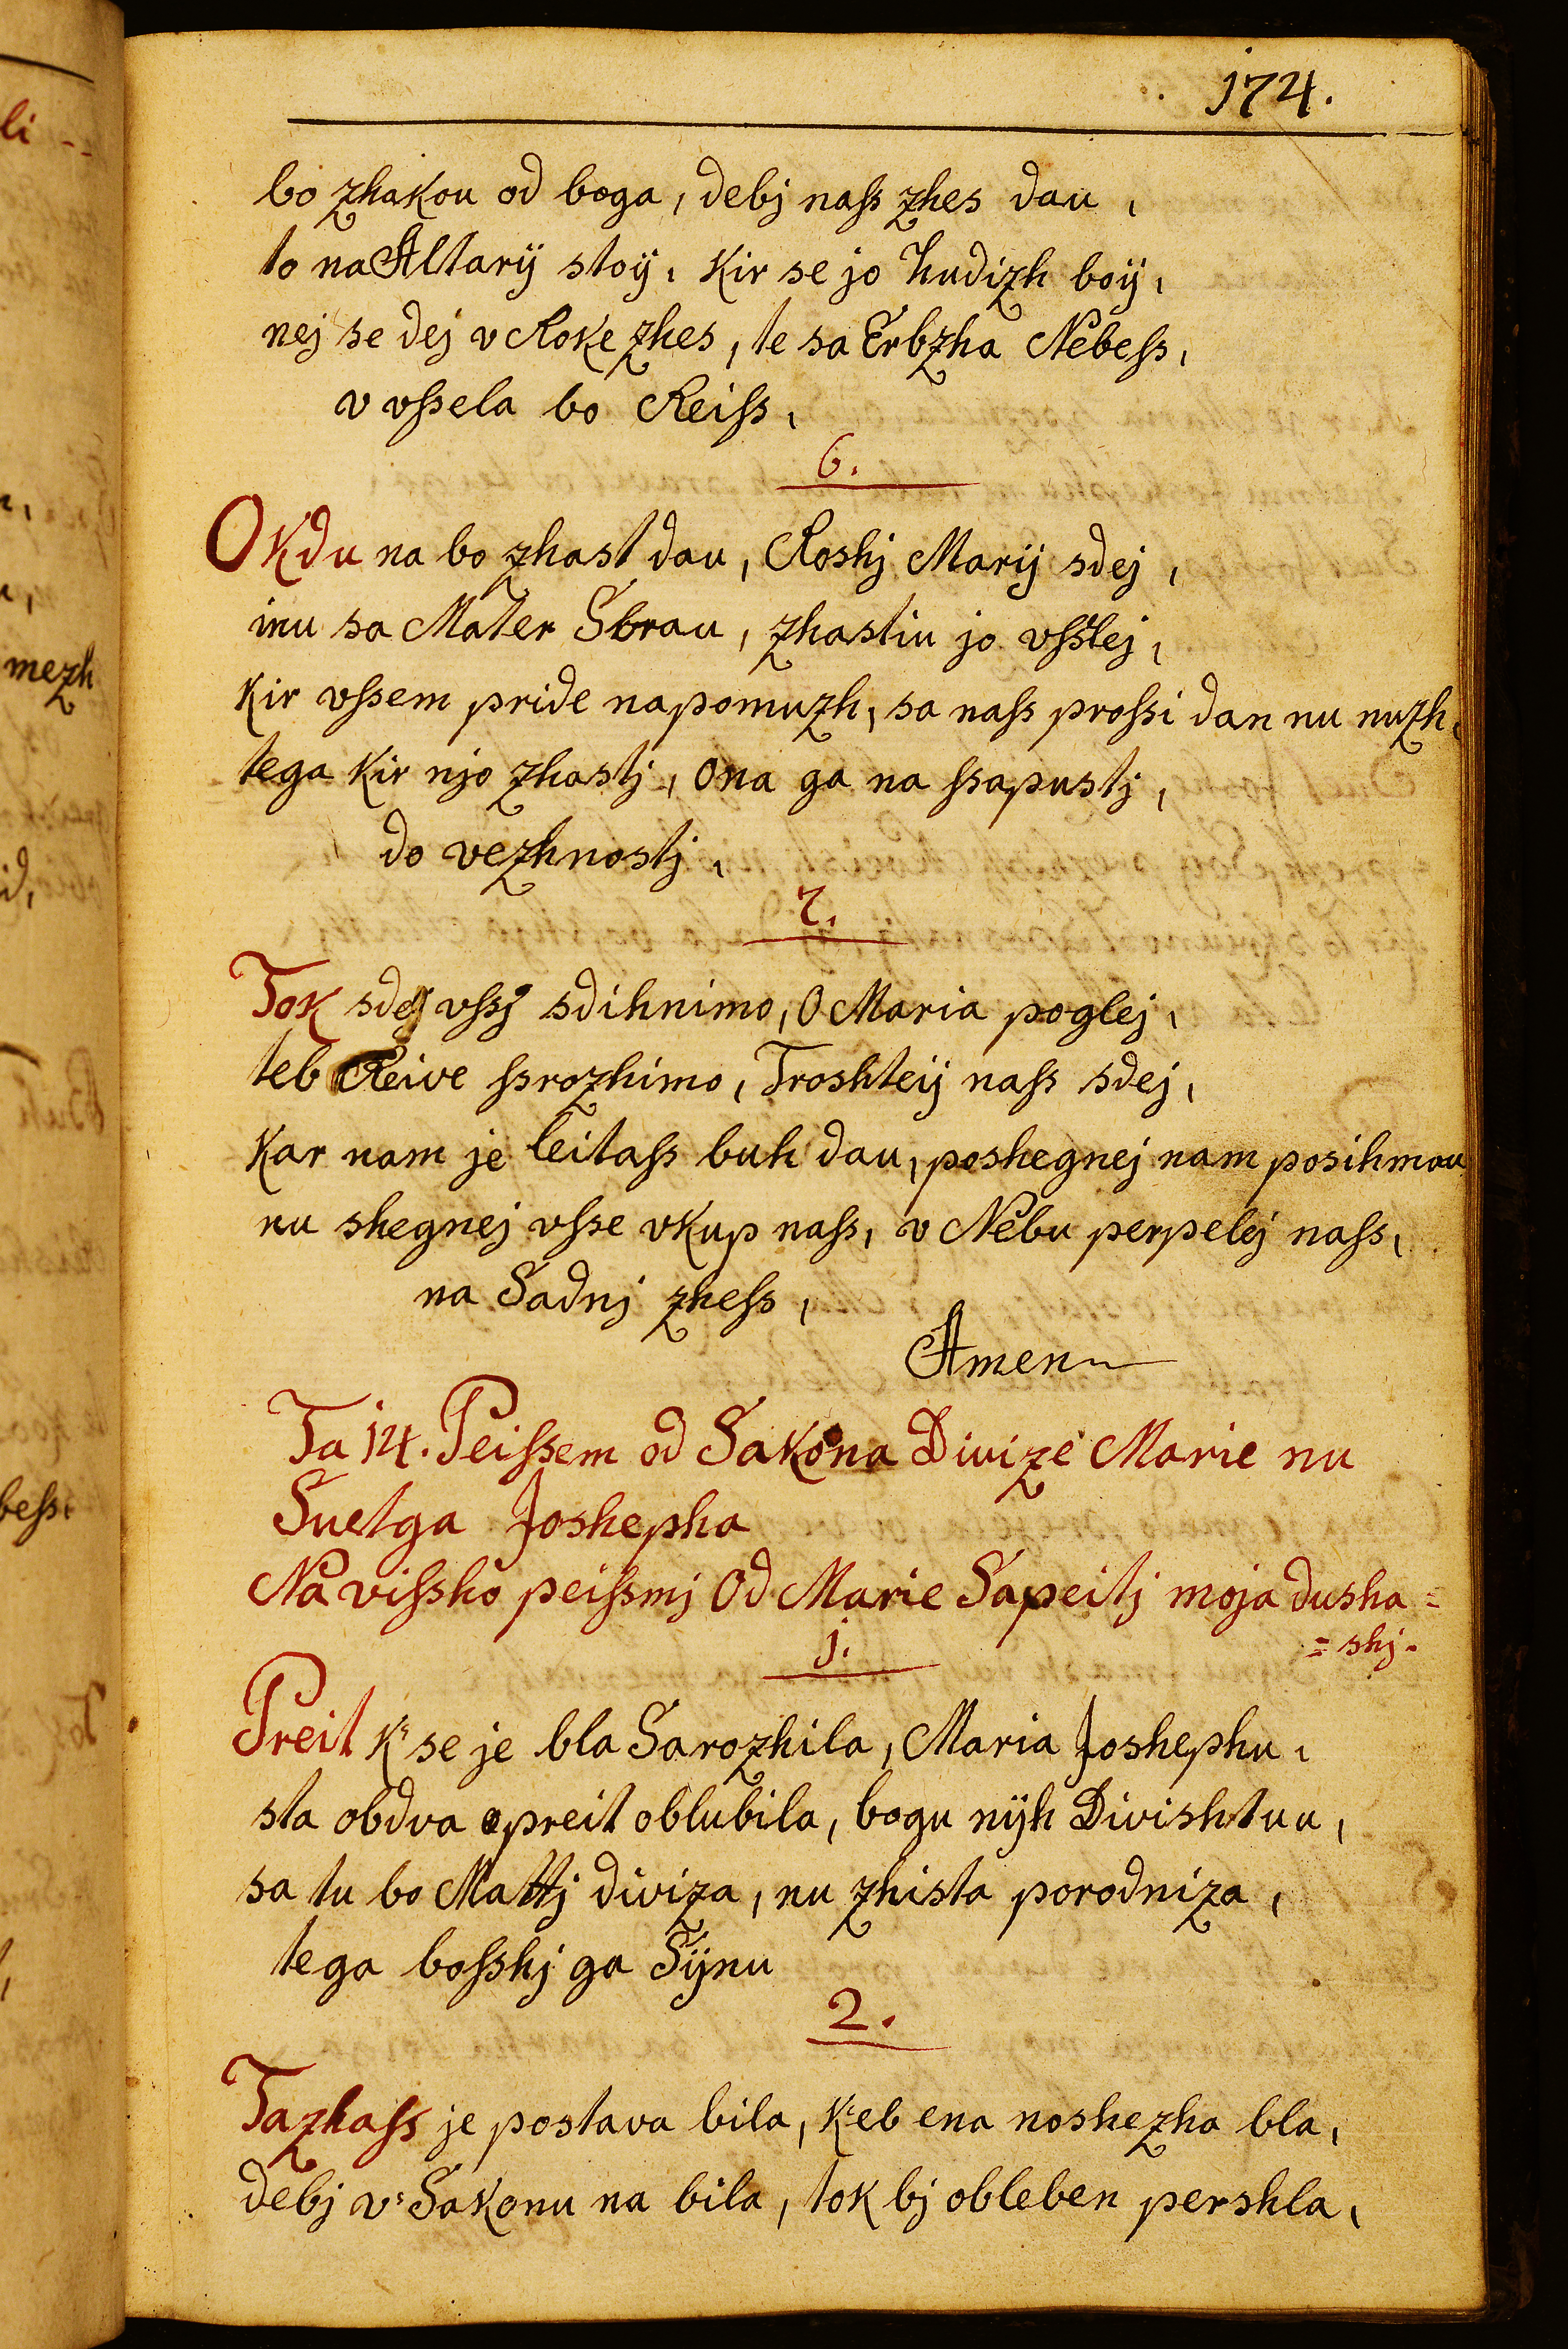 174.
bo zhakou od boga, debj nass zhes dau,
to na Altarÿ stoÿ, Kir se jo hudizh boÿ,
nej se dej v Roke zhes, te sa Erbzha Nebess,
v vssela bo Reiss,
6.
O Kdu na bo zhast dau, Roshj Marÿ sdej,
inu sa Mater Sbrau, zhastiu jo vsslej,
Kir vssem pride napomuzh, sa nass prossi dan nu nuzh,
tega Kir njo zhastj, Ona ga na ssapustj,
do vezhnostj,
7.
Tok sdej vssj sdihnimo, O Maria poglej,
teb Reive ssrozhimo, Troshteÿ nass sdej,
Kar nam je leitass buh dau, poshegnej nam posihmau
nu shegnej vsse vKup nass, v Nebu perpelej nass,
na Sadnj zhess,
Amen
Ta 14. Peissem od Sakona Divize Marie nu
Suetga Joshepha
Na vissho peissmj Od Marie Sapeitj moja dusha =
= shj.
j.
Preit K' se je bla Sarozhila, Maria Joshephu,
sta obdva preit oblubila, bogu nÿh Divishtuu,
sa tu bo Mattj diviza, nu zhista porodniza,
tega bosshj ga Sÿnu
2.
Tazhass je postava bila, K'eb ena noshezha bla,
debj v' Sakonu na bila, tok bj obleben pershla,
li --
mezh
id,
bess,